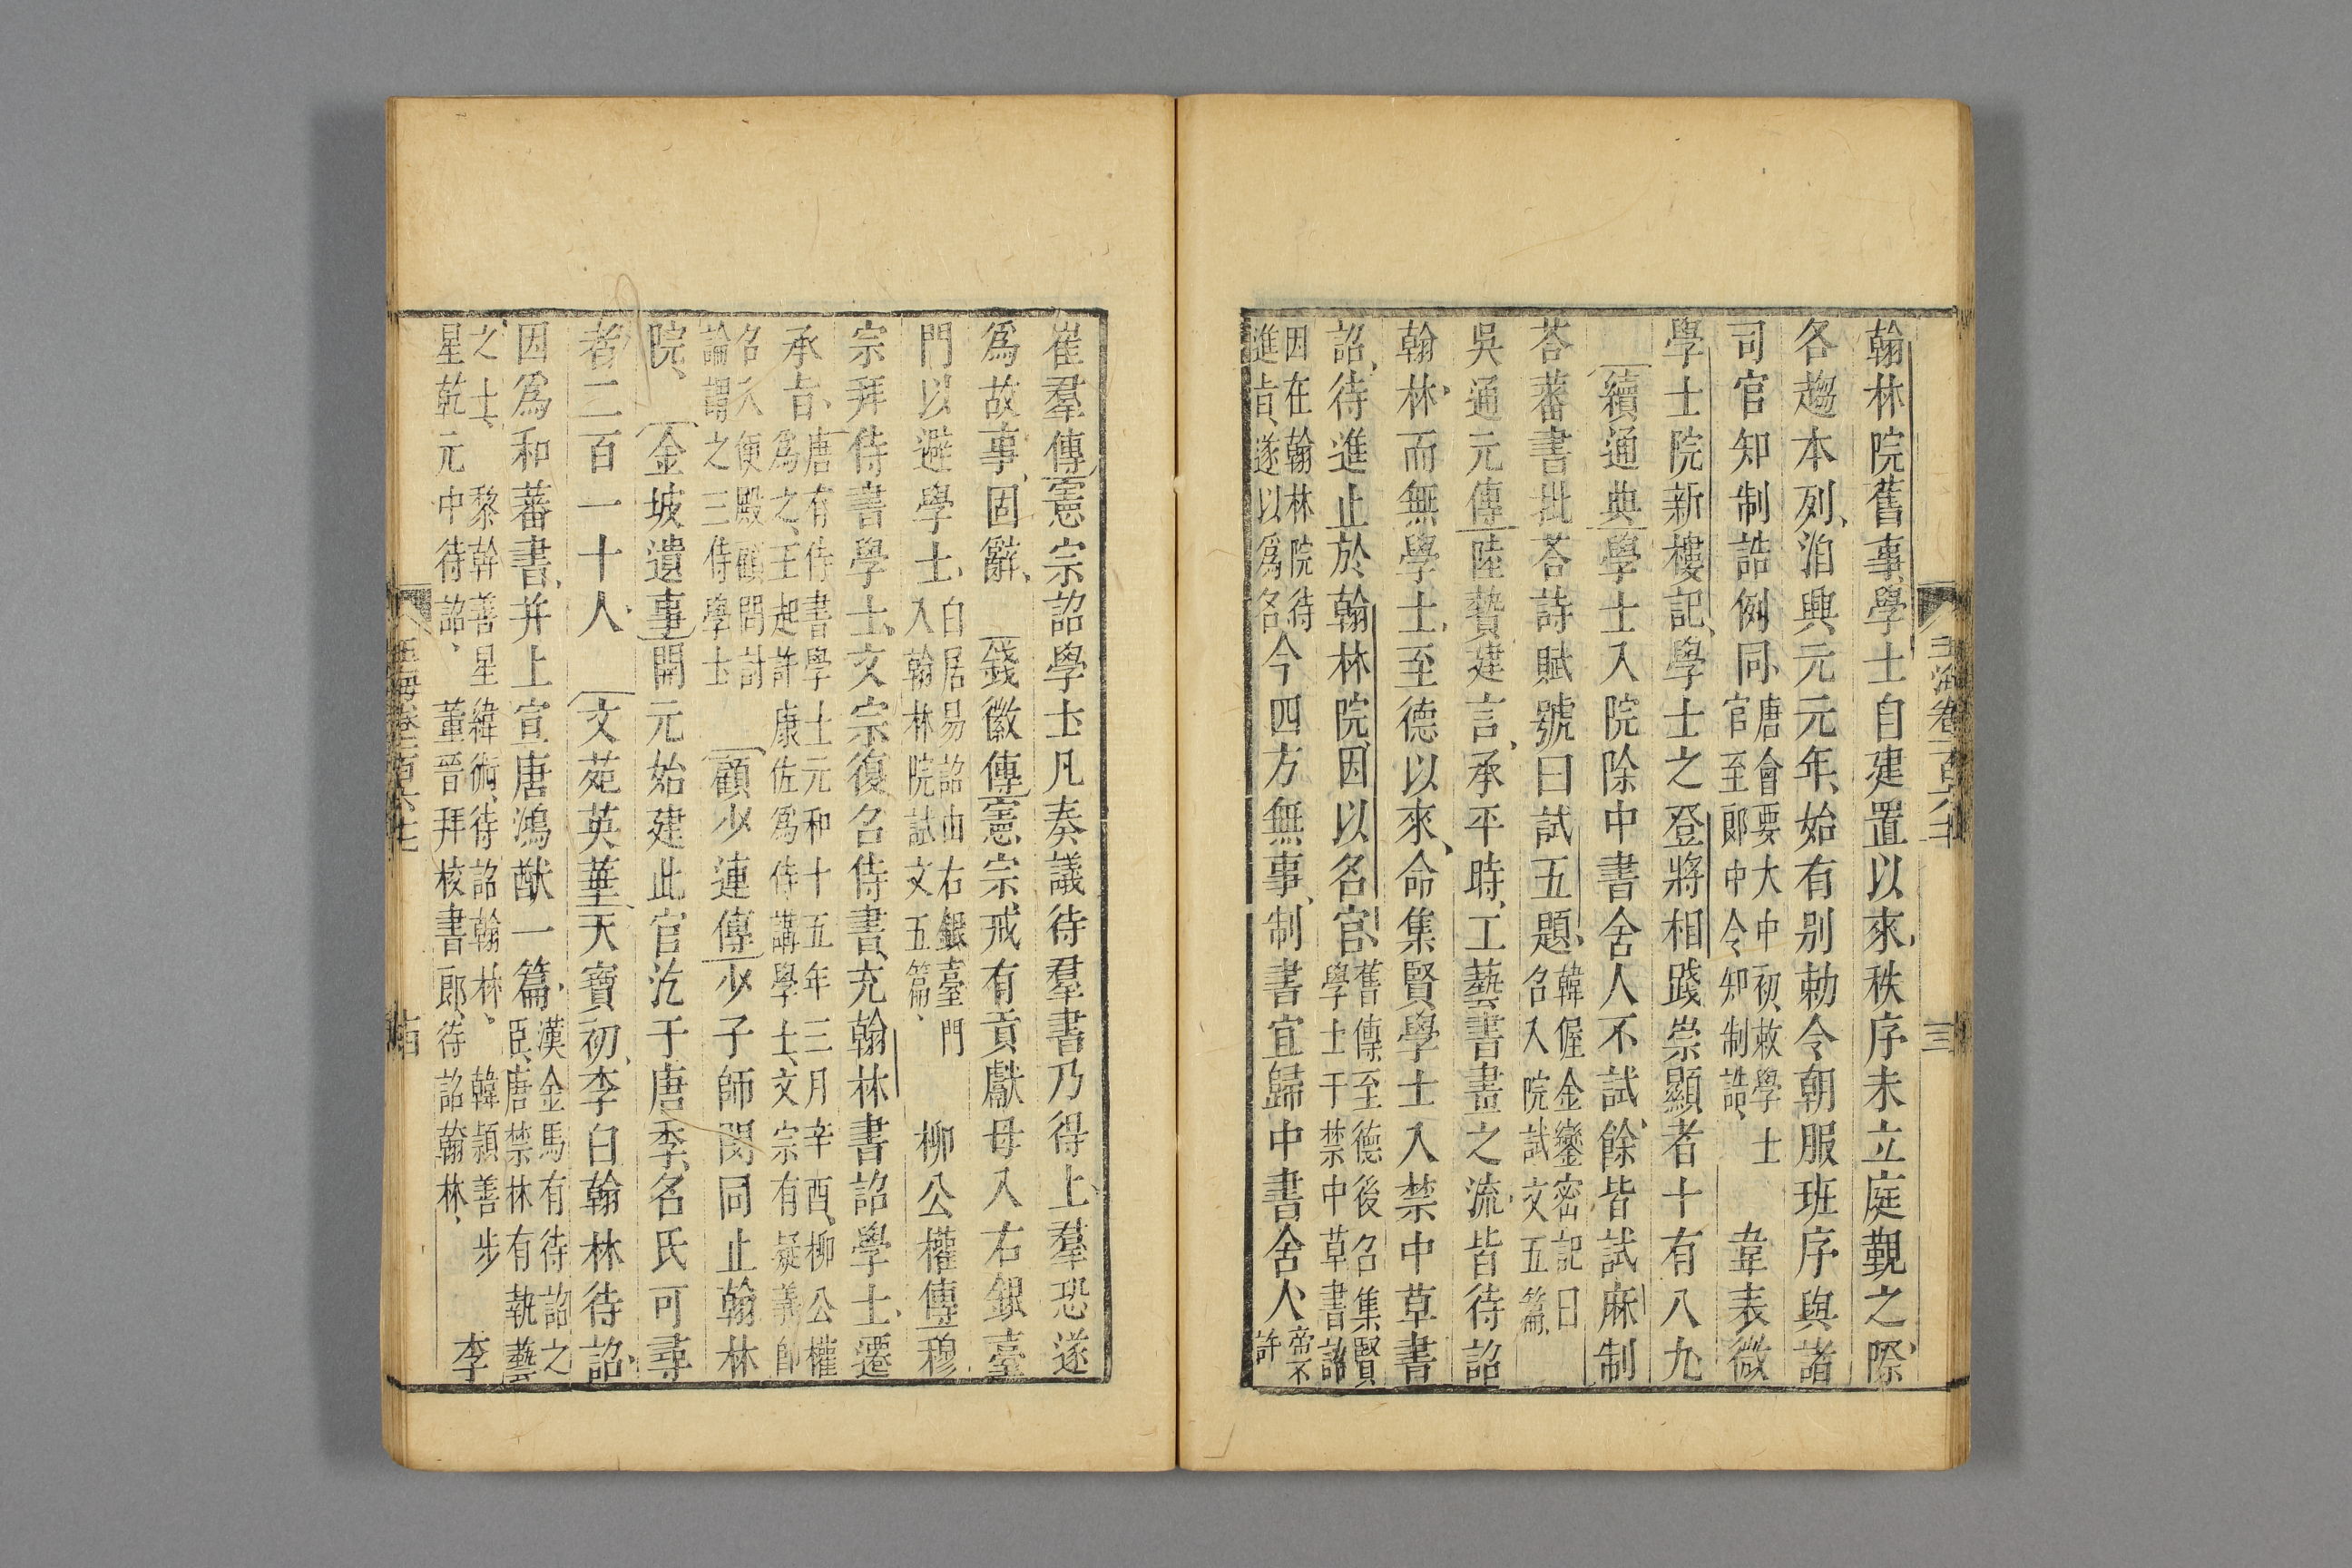 翰林院舊事學士自建置以來秩序未立庭覲之際
各趨本列洎興元元年始有别勅令朝服班序與諸
司官知制誥例同唐會要大中初敕學士官至郎中令知制誥韋表微
學士院新樓記學士之登將相踐崇顯者十有八九
續通典學士入院除中書舍人不試餘皆試麻制
荅蕃書批荅詩賦號曰試五題韓偓金鑾密記曰名入院試文五篇
吳通元傳陸贄建言承平時工藝書畫之流皆待詔
翰林而無學士至德以來命集賢學士入禁中草書
詔待進止於翰林院因以名官舊傳至德後召集賢學士于禁中草書詔
因在翰林院待進旨遂以爲名今四方無事制書宜歸中書舍人帝不許
玉海卷一百六十七
三
崔羣傳憲宗詔學士凡奏議待羣書乃得上羣恐遂
爲故事固辭錢徽傳憲宗戒有貢獻毋入右銀臺
門以避學士白居易詔由右銀臺門入翰林院試文五篇柳公權傳穆
宗拜侍書學士文宗復召侍書充翰林書詔學士遷
承旨唐有侍書學士元和十五年三月辛酉柳公權爲之王起許康佐爲侍講學士文宗有疑義卽
召入便殿顧問討論謂之三侍學士顧少連傳少子師閔同止翰林
院金坡遺事開元始建此官汔于唐季名氏可尋
者二百一十人文苑英華天寶初李白翰林待詔
因爲和蕃書并上宣唐鴻猷一篇漢金馬有待詔之臣唐禁林有執藝
之士黎幹善星緯術待詔翰林韓潁善步星乾元中待詔董晉拜校書郎待詔翰林李